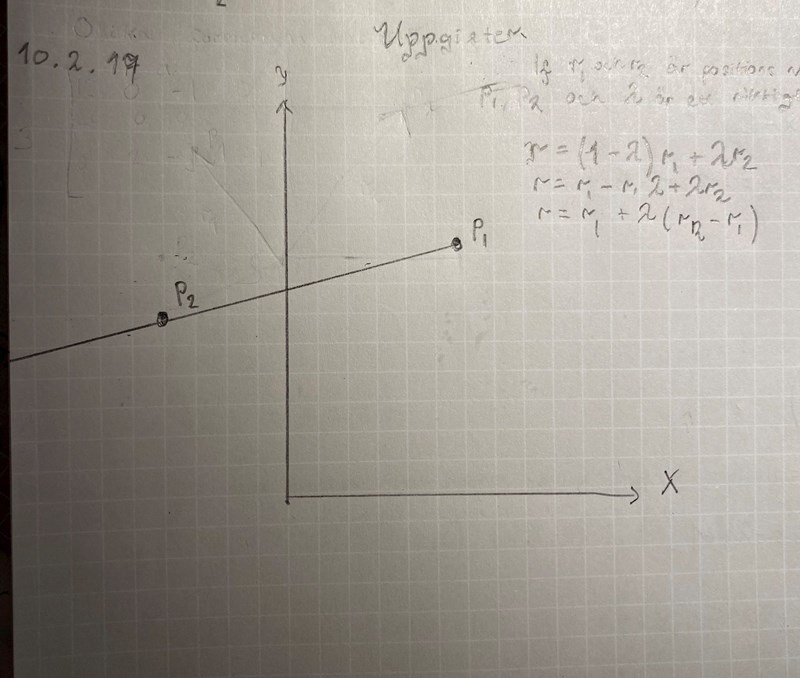 2
Uppgiften
10.2.17
y
If r₁ och r₂ är positions
P₁, P₂ och λ är ett
r = (1 - λ) r₁ + λr₂
r = r₁ - r₁ λ + λr₂
r = r₁ + λ (r₂ - r₁)
P₁
P₂
X